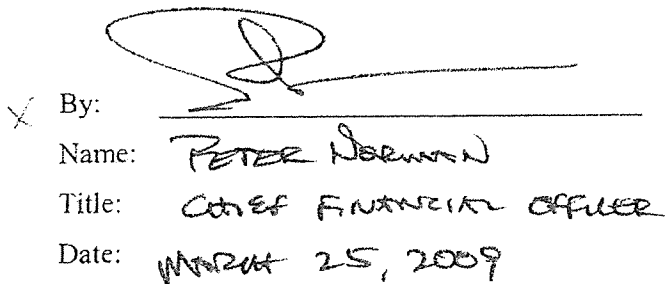 X By:
Name: PETER NORMAN
Title: CHIEF FINANCIAL OFFICER
Date: MARCH 25, 2009